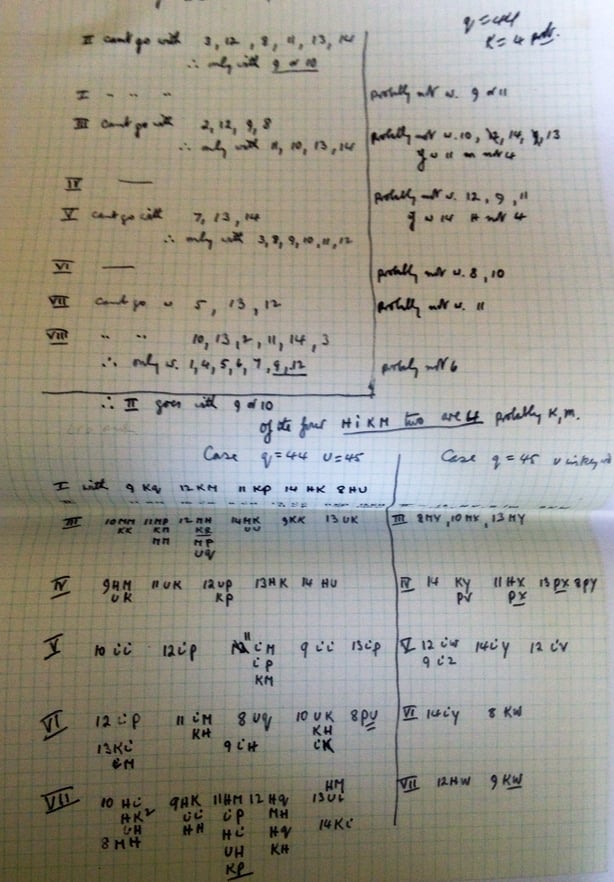 q = 44
K = 4 prob.
II can't go with 3, 12, 8, 11, 13, 14
∴ only with 9 or 10
I " " " probably not w. 9 or 11
III can't go with 2, 12, 9, 8 probably not w. 10, 14, 13
∴ only with 11, 10, 13, 14 if w 11 m not 4
IV — probably not w. 12, 9, 11
V can't go with 7, 13, 14 if w 14 H not 4
∴ only with 3, 8, 9, 10, 11, 12
VI — probably not w. 8, 10
VII can't go w 5, 13, 12 probably not w. 11
VIII " " 10, 13, 2, 11, 14, 3
∴ only w. 1, 4, 5, 6, 7, 9, 12 probably not 6
∴ II goes with 9 or 10
of the four H i K M two are 4 probably K, M.
Case q = 44 U = 45 Case q = 45
I with 9 Kq 12 KM 11 KP 14 HK 8 HU
III 10 MM 11 MP 12 MH 14 MK 9 KK 13 UK III 8 MY, 10 MX, 13 MY
KK KM KR UU
MM MP
UQ
IV 9 HM 11 UK 12 UP 13 HK 14 HU IV 14 KY 11 HX 13 PX 8 PY
UK KP PV PX
V 10 ii 12 iP 11 iM 9 ii 13 iP V 12 iW 14 iY 12 iV
iP 9 iZ
KM
VI 12 iP 11 iM 8 Uq 10 UK 8 PU VI 14 iY 8 KW
KH KH
13 Ki 9 iH iK
iM
HM
VIII 10 Hi 9 HK 11 HM 12 Hq 13 Ui VII 12 HW 9 KW
HK² ii iP MH
UH HH Hi Hq 14 Ki
8 MH UH KH
KP